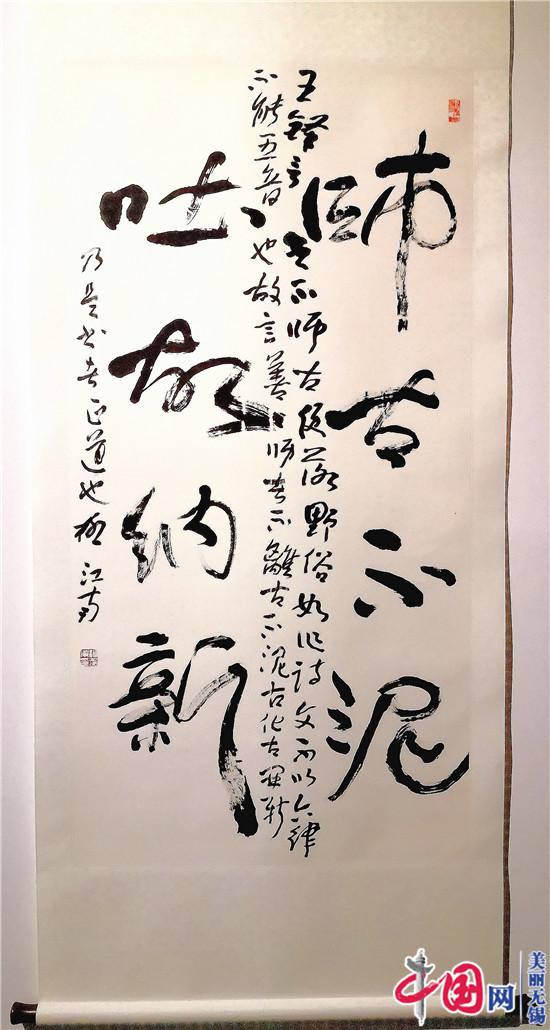 師古不泥
王鐸言書不師古便落野俗如作詩文不以六律
不能五音也故言善師者不離古不泥古化古開新
吐故納新
乃是書者正道也 江南
中国网
美丽无锡